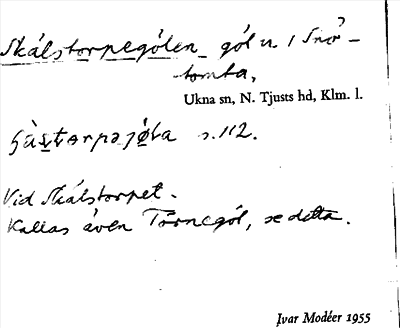 Skálstorpegölen göl n. i Snö-
tomta,
Ukna sn, N. Tjusts hd, Klm. l.
s. 112.
Vid Skálstorpet.
Kallas även Törnegöl, se detta.
Ivar Modéer 1955